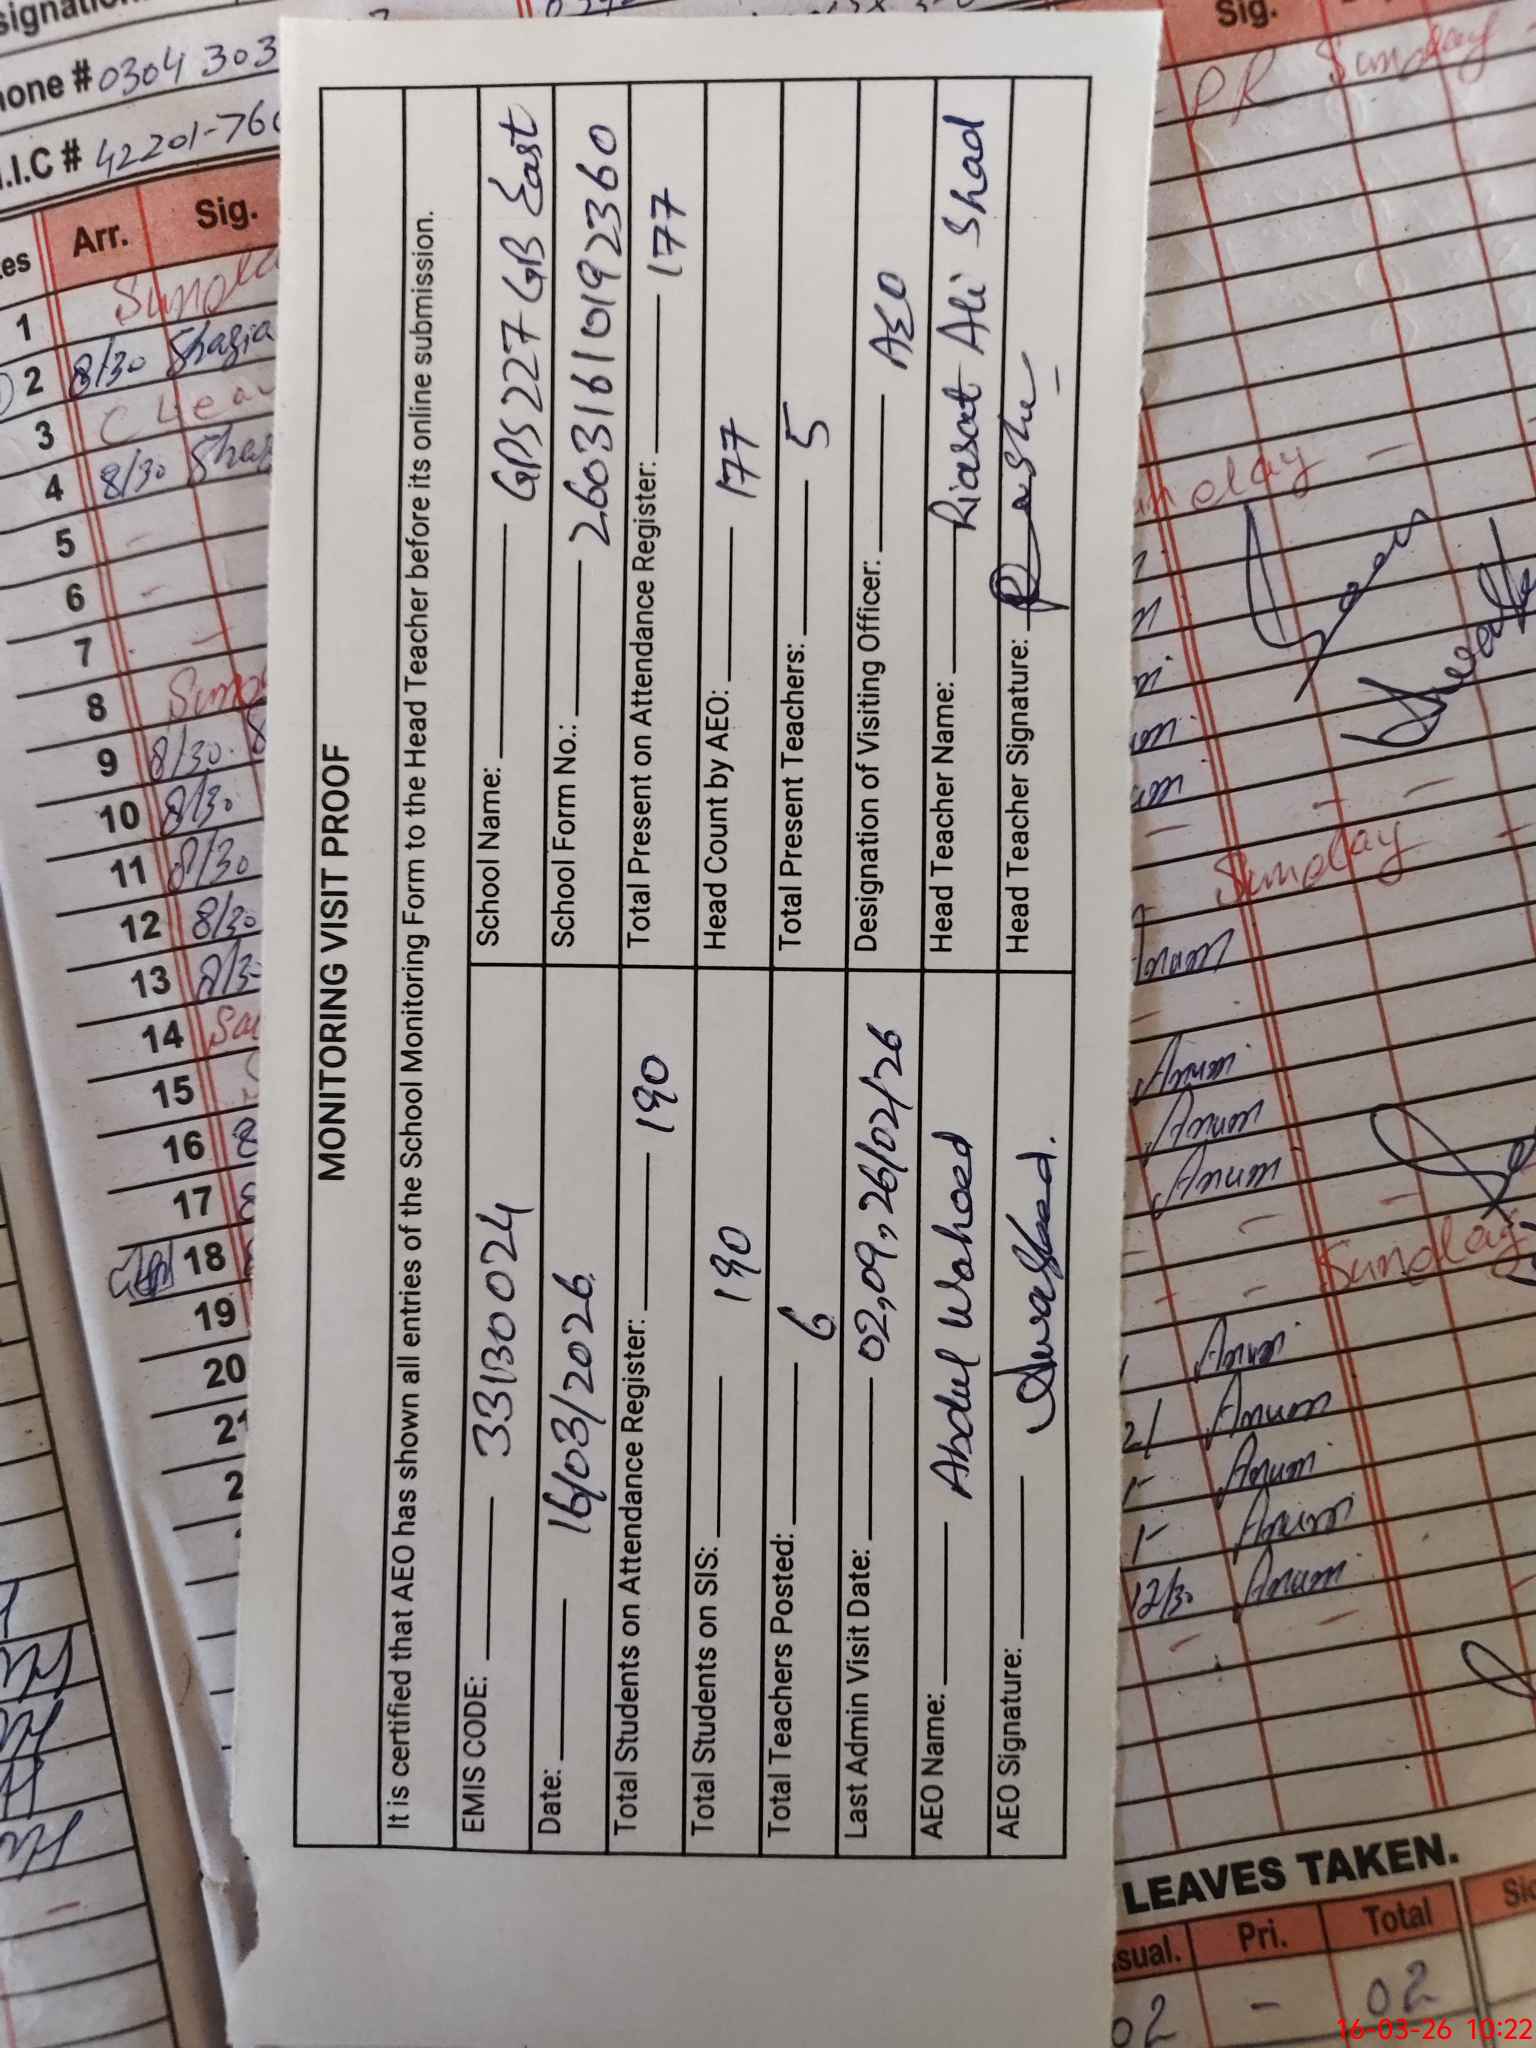 MONITORING VISIT PROOF
It is certified that AEO has shown all entries of the School Monitoring Form to the Head Teacher before its online submission.
EMIS CODE: 33130024 School Name: GPS 227 GB East
Date: 16/03/2026 School Form No.: 2603161019 2360
Total Students on Attendance Register: 190 Total Present on Attendance Register: 177
Total Students on SIS: 190 Head Count by AEO: 177
Total Teachers Posted: 6 Total Present Teachers: 5
Last Admin Visit Date: 02,09,,26/02/26 Designation of Visiting Officer: AEO
AEO Name: Abdul Waheed Head Teacher Name: Riasat Ali Shad
AEO Signature: Head Teacher Signature:
hone # 0304 303
.I.C # 42201-760
es Arr. Sig.
1
2 8/30 Shazia
3 C Leav
4 8/30
5
6
7
8
9 8/30
10 8/30
11 8/30
12 8/30
13
14
15
16 8
17 8
18
19
20
Sig.
Sunday
Sunday
Anum
Anum
Anum
Anum
Sunday
Anum
Anum
Anum
Anum
12/30 Anum
LEAVES TAKEN.
sual. Pri. Total
02 - 02
16-03-26 10:22